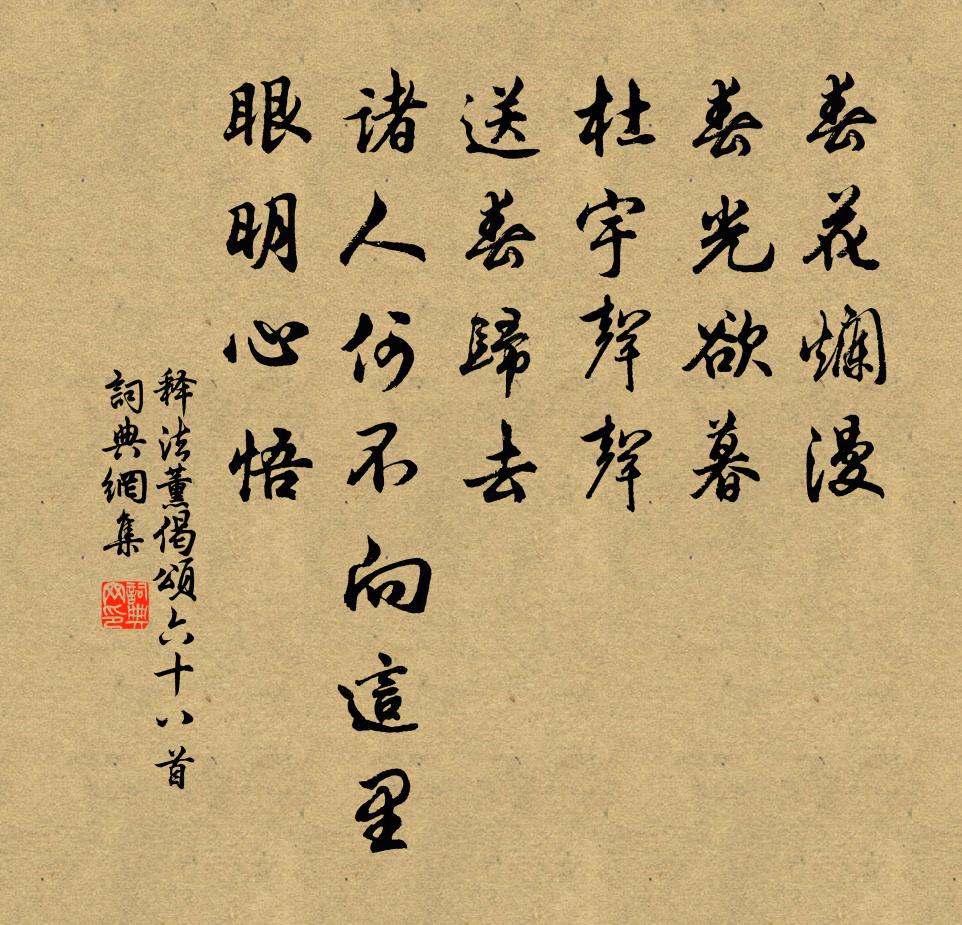 春花爛漫
春光欲暮
杜宇聲聲
送春歸去
諸人何不向這里
眼明心悟
释法薰偈頌六十八首
詞典網集
詞典网印